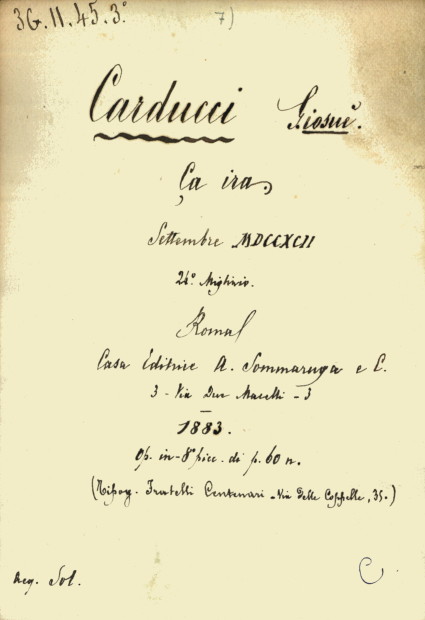 36.11.45.3°
7)
Carducci Giosuè.
Ça ira,
Settembre MDCCXCII
2° Migliaio.
Roma
Casa Editrice A. Sommaruga e C.
3 - Via Due Macelli - 3
1883.
Op. in-8° picc. di p. 60 n.
(Tipog. Fratelli Centenari - Via delle Coppelle, 35.)
Acq. Sol. C